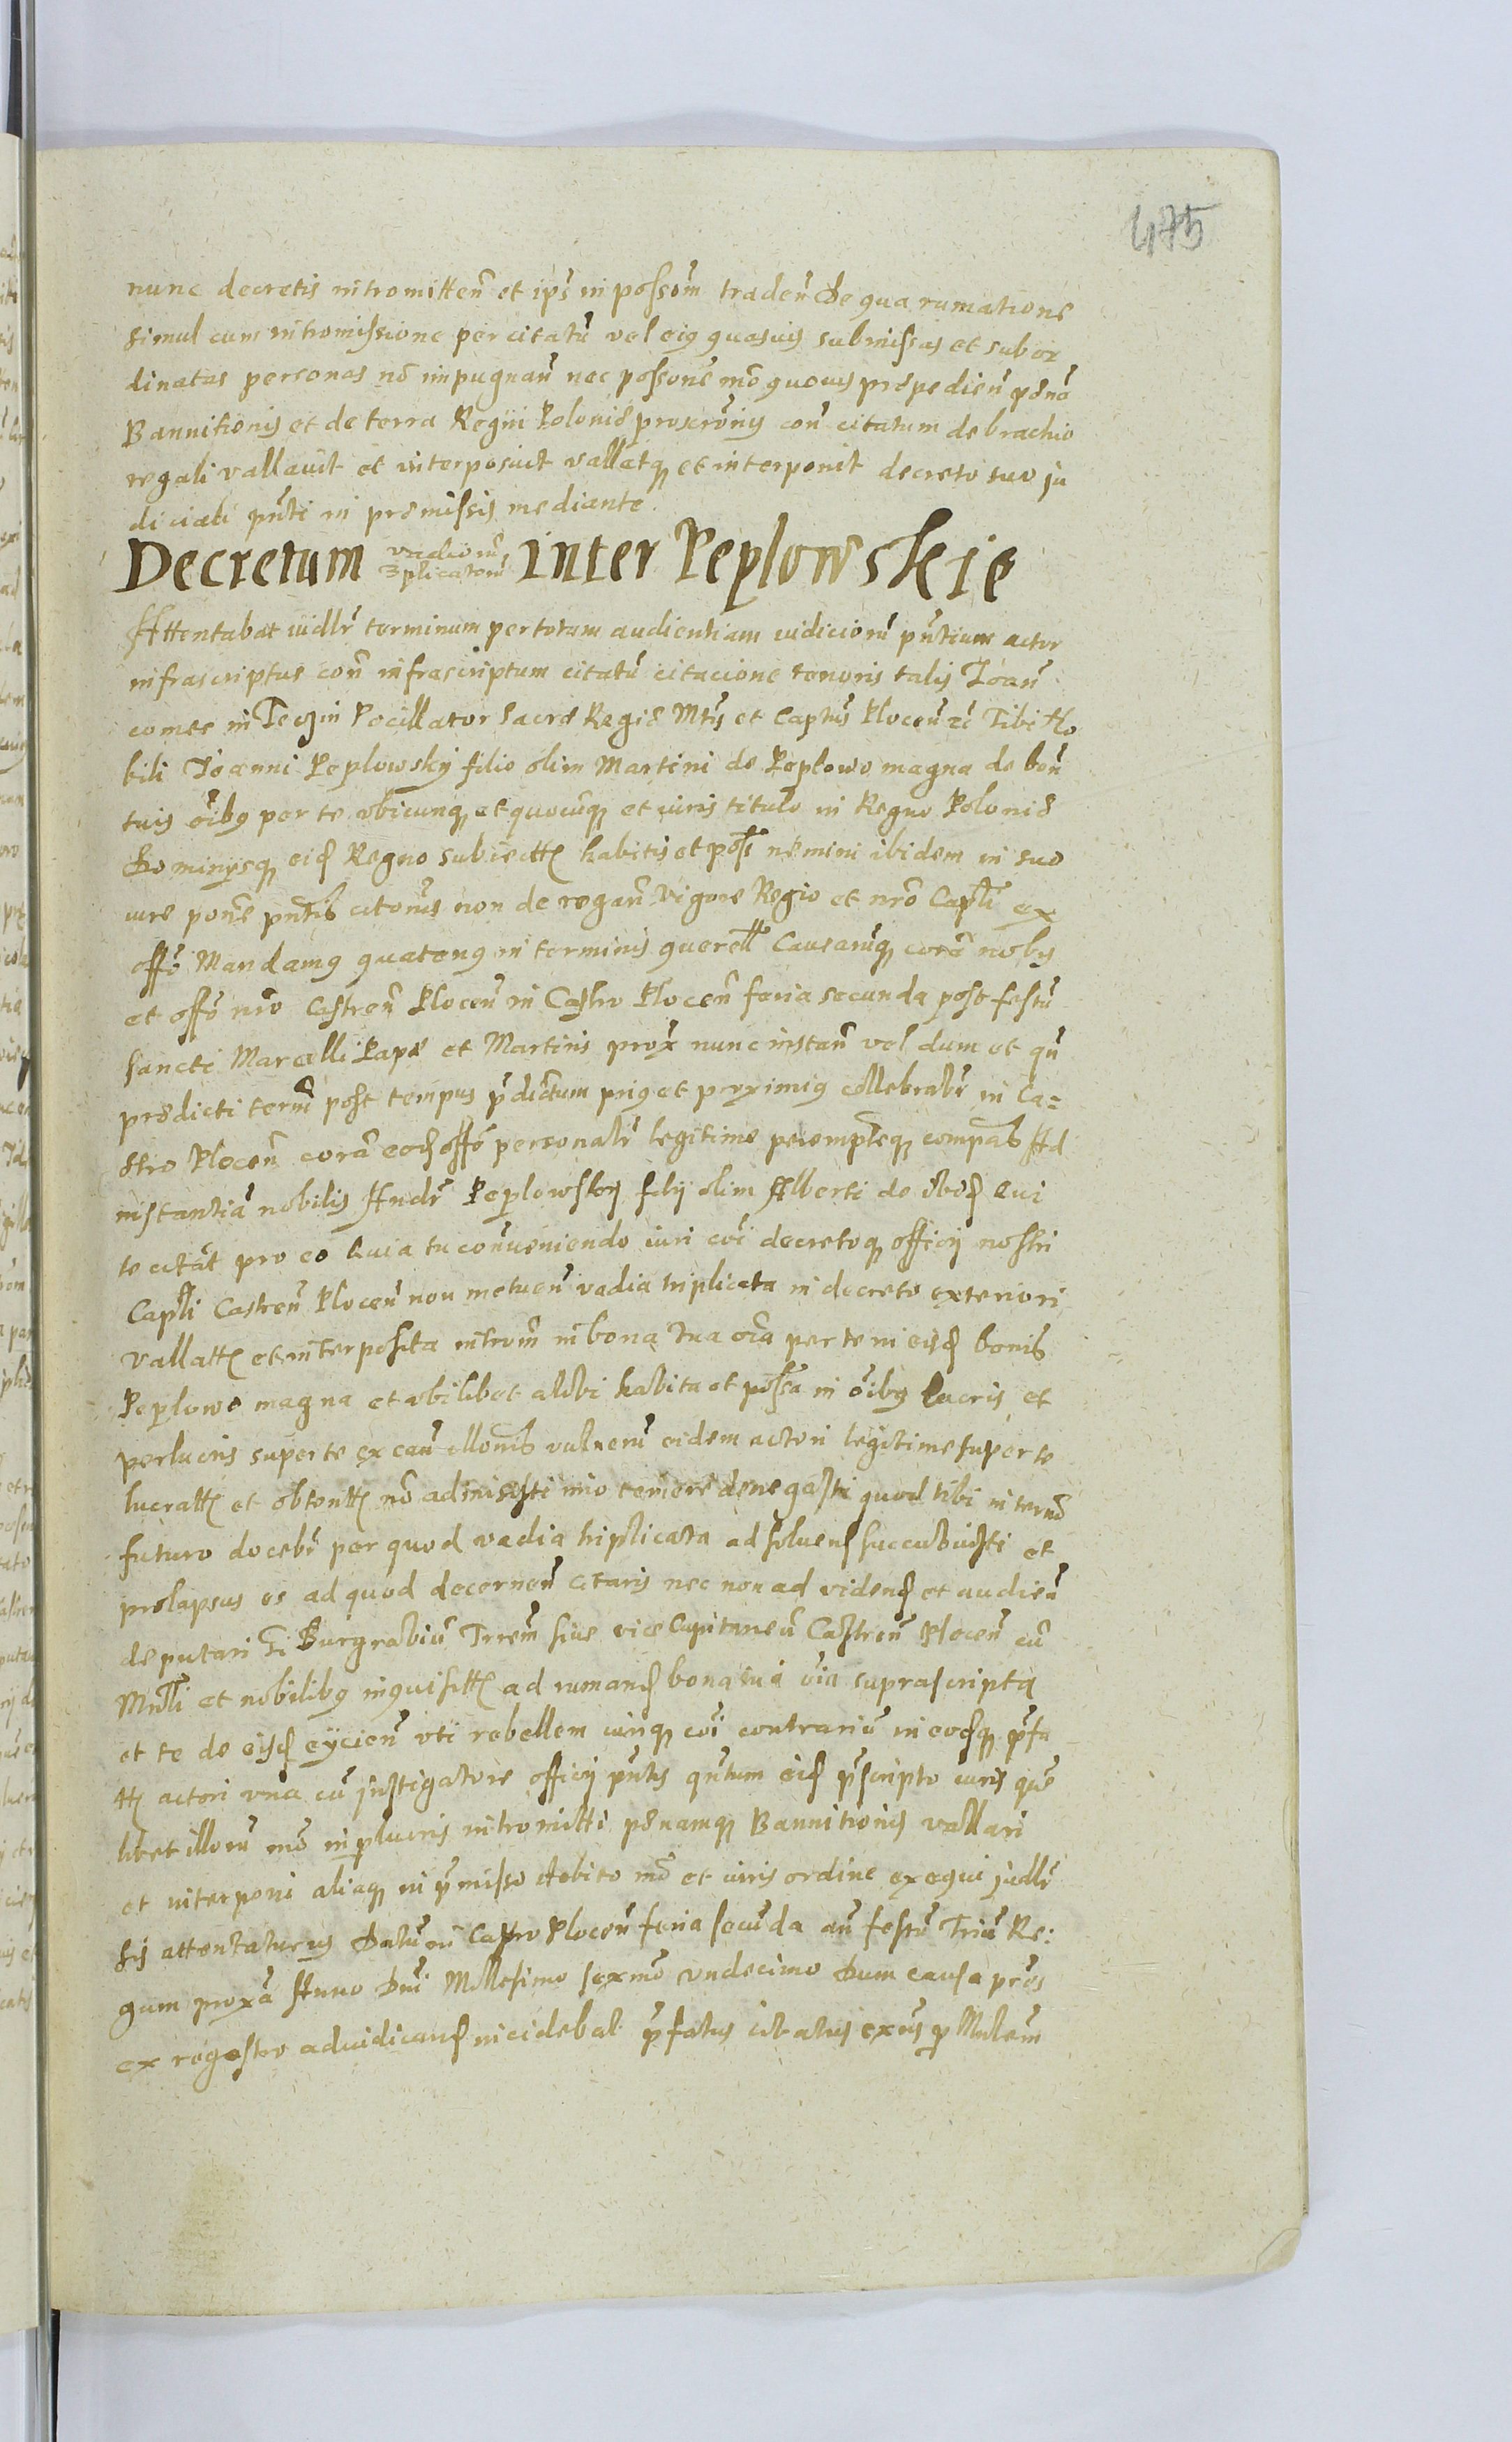 475
nunc decretis intromitten̄ et ip̄s in possm̄ traden̄ De qua rumatione
simul cum intromissione per citatū vel eiꝯ quasuis submissas et subor
dinatas personas nō impugnan̄ nec possone mō quouis prępedien̄ pęnā
Bannitionis et de terra Regni Polonię proscrōnis con̄ citatum de brachio
regali vallauit et interposuit vallatqꝫ et interponit decreto suo ju
diciali pn̄ti in pręmissis mediante.
Decretum vadiorū 3plicatorū inter Peplowskie
Attentabat iudlr̄ terminum per totam audientiam iudiciorū pn̄tium actor
infrascriptus con̄ infrascriptum citatū citacione tenoris talis Joan̄
comes in Teczin Pocillator Sacrę Regię Mtis et Captus̄ Plocen̄ zc̄ Tibi No
bili Joanni Peplowsky filio olim Martini de Peplowo magna de bon̄
tuis oībꝯ per te vbicunqꝫ et quocunqꝫ et iuris titulo in Regno Polonię
Dominysqꝫ eidꝭ Regno subiectꝭ habitis et posˢ nemini ibidem in suo
iure pone pn̄tib citonis̄ non derogan̄ Vigore Regio et nr̄o Capli ex
offō Mandamꝯ quatenꝯ in terminis querell Causarūqꝫ corā nobis
et offō nr̄o Castren̄ Plocen̄ in Castro Plocen̄ feria secunda post festū
Sancti Marcelli Papę et Martiris prox̄ nunc instan̄ vel dum et qn̄
prędicti term̄ post tempus p̄dictum priꝯ et proximiꝯ cęlebrabr̄ in Ca=
stro Plocen̄ corā eodꝭ offō personalr̄ legitime peremptieqꝫ compas Ad
instantiā nobilis Andr̄ Peplowsky filij olim Alberti de ibidꝭ Qui
te citāt pro eo Quia tu conueniendo iuri cōi decretoqꝫ officij nostri
Capli Castren̄ Plocen̄ non metuen̄ vadia triplicata in decreto exteriori
vallatꝭ et interposita introm̄ in bona Tua oīa per te in eisdꝭ bonis
Peplowo magna et vbilibet alibi habita et possa in oībꝯ lucris et
perlucris super te ex cau ̄ illonis vulnerū eidem actori legitime super te
lucratꝭ et obtentꝭ nō admisisti imo temere denegasti quod tibi in termō
futuro docebr̄ per quod vadia triplicata ad soluendꝭ succubuisti et
prolapsus es ad quod decernen̄ citaris nec non ad videndꝭ et audien̄
deputari Burgrabiū Trrem̄ siue vice Capitaneū Castren̄ Plocen̄ cū
Mrli et nobilibꝯ inquisitꝭ ad rumandꝭ bona tua oīa suprascripta
et te de eisdꝭ eijcien̄ vti rebellem iuriqꝫ cōi contrariū in eodꝭqꝫ p̄fa
tꝭ actori vna cū instigatore officij pn̄tis qn̄tum eidꝭ p̄scripto iuris que
libet illorū mō in plucris intromitti penamqꝫ Bannitionis vallari
et interponi aliaqꝫ in p̄misso debito mō et iuris ordine exequi judlr̄
sis attentaturus Datū in Castro Plocen̄ feria secūda an̄ festū Triū Re:
gum proxā Anno Dn̄i Millesimo sexmō vndecimo Dum causa pn̄s
ex regestro adiudicandꝭ incidebat p̄fatus citatus exn̄s p Mnlem̄